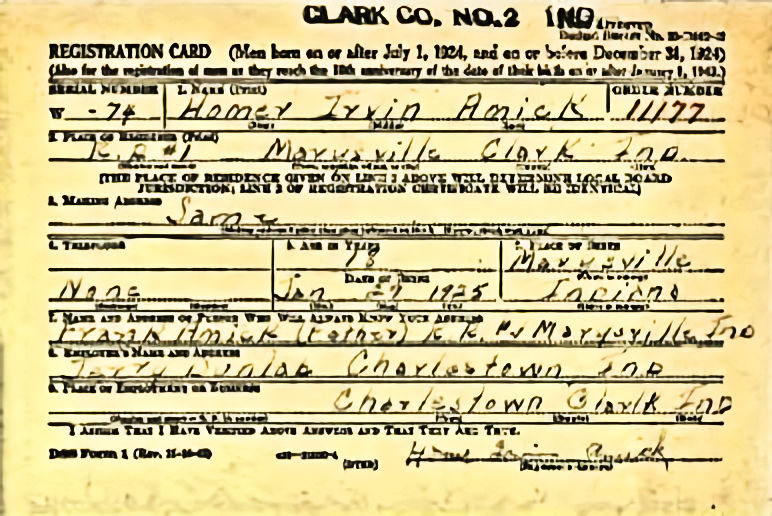 CLARK CO. NO. 2 IND
REGISTRATION CARD (Men born on or after July 1, 1924, and on or before December 31, 1924)
(Also for the registration of men as they reach the 18th anniversary of the date of their birth on or after January 1, 1943.)
SERIAL NUMBER 1. NAME (Print) ORDER NUMBER
W -74 Homer Irvin Amick 11177
2. PLACE OF RESIDENCE (Print)
R.R #1 Marysville Clark Ind.
(THE PLACE OF RESIDENCE GIVEN ON LINE 2 ABOVE WILL DETERMINE LOCAL BOARD
JURISDICTION; LINE 2 OF REGISTRATION CERTIFICATE WILL BE IDENTICAL)
3. MAILING ADDRESS
Same
4. TELEPHONE 5. AGE IN YEARS 6. PLACE OF BIRTH
18 Marysville
DATE OF BIRTH
None Jan 1925 Indiana
7. NAME AND ADDRESS OF PERSON WHO WILL ALWAYS KNOW YOUR ADDRESS
Frank Amick (Father) R.R. Marysville Ind
8. EMPLOYER'S NAME AND ADDRESS
Dunlap Charlestown Ind
9. PLACE OF EMPLOYMENT OR BUSINESS
Charlestown Clark Ind
I AFFIRM THAT I HAVE VERIFIED ABOVE ANSWERS AND THAT THEY ARE TRUE.
DSS Form 1 (Rev. (over)
Amick